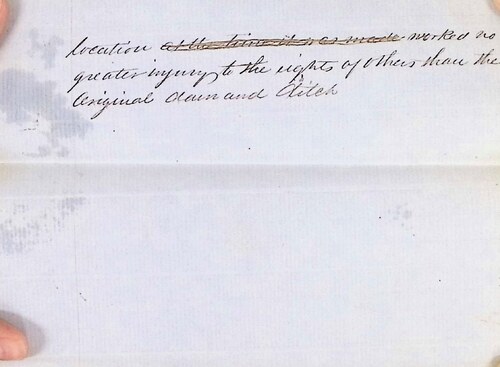 location at the time it was made worked no
greater injury to the rights of others than the
original dam and ditch